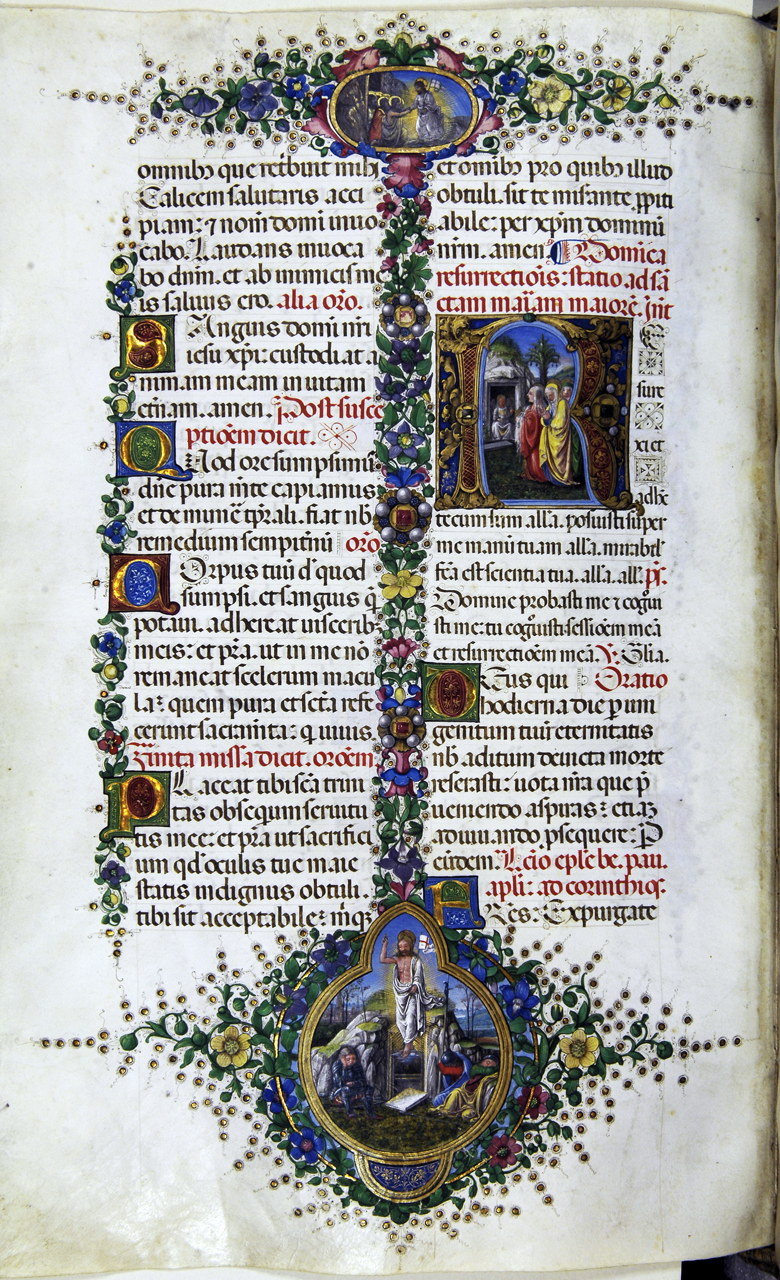 omnibꝫ que retribuit mihi
Calicem salutaris acci
piam: ⁊ nom̄ domi inuo
cabo. Laudans inuoca
bo dnm̄. et ab inimicis me
is saluus ero. alia orō.
Sanguis domi nr̄i
iesu xp̄i: custodiat a
nimam meam in uitam
et̄nam. amen. p̄dost susce
ptiōem dicit.
Quod ore sumpsimꝰ
dn̄e pura m̄te capiamus
et de mune tp̄rali. fiat nb̄
remedium sempitn̄ū orō
Corpus tuū d' quod
sumpsi. et sanguis q̄
potaui. adhereat uisceribꝫ
meis: et p̄ra. ut in me nō
remaneat scelerum macu
la: quem pura et sc̄ta refe
cerunt sacram̄ta: q uiuis.
Finita missa dicit. orōem
Placeat tibi sc̄a trini
tas obsequium seruitu
tis mee: et p̄ra ut sacrifici
um qd' oculis tue maie
statis indignus obtuli.
tibi sit acceptabile: m̄qꝫ
et omībꝫ pro quibꝫ illud
obtuli. sit te miserante. ppiti
abile: per xp̄m dominū
nr̄m. amen Domīca
resurrectiōis: statio ad sā
ctam mariam maiorē. Int̄
RE
sure
xi et
adhc
tecum sum all'a. posuisti super
me manū tuam all'a. mirabil'
fc̄a est scientia tua. all'a. all'. ps̄.
Domine probasti me ⁊ cogn̄o
sti me: tu cognouisti sessiōem meā
et resurrectiōem meā. V. Gl̄ia.
Deus qui Oratio
hodierna die p̄ um
genitum tuū eternitatis
nb̄ aditum deuicta morte
reserasti: uota nr̄a que p̄
ueniendo aspiras: etiaꝫ
adiuuando p̄sequere: P
eūdem. Lc̄io ep̄le be. pau.
apl̄i: ad corinthios.
FRes: Expurgate